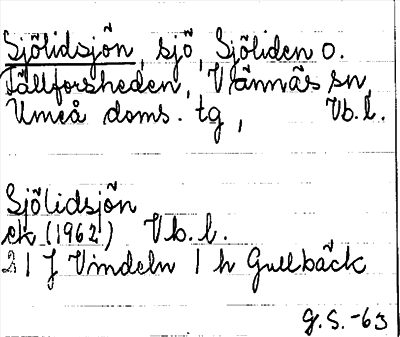 Sjölidsjön, sjö, Sjöliden o.
Tällforsheden, Vännäs sn,
Umeå doms. tg, Vb. l.
Sjölidsjön
ek (1962) Vb. l.
21 J Vindeln 1 h Gullbäck
G.S. -63